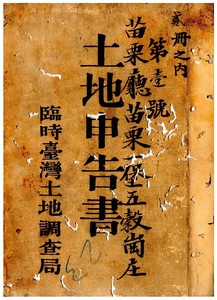 貳冊之內
第壹號
苗栗廳苗栗一堡五穀崗庄
土地申告書
臨時臺灣土地調查局